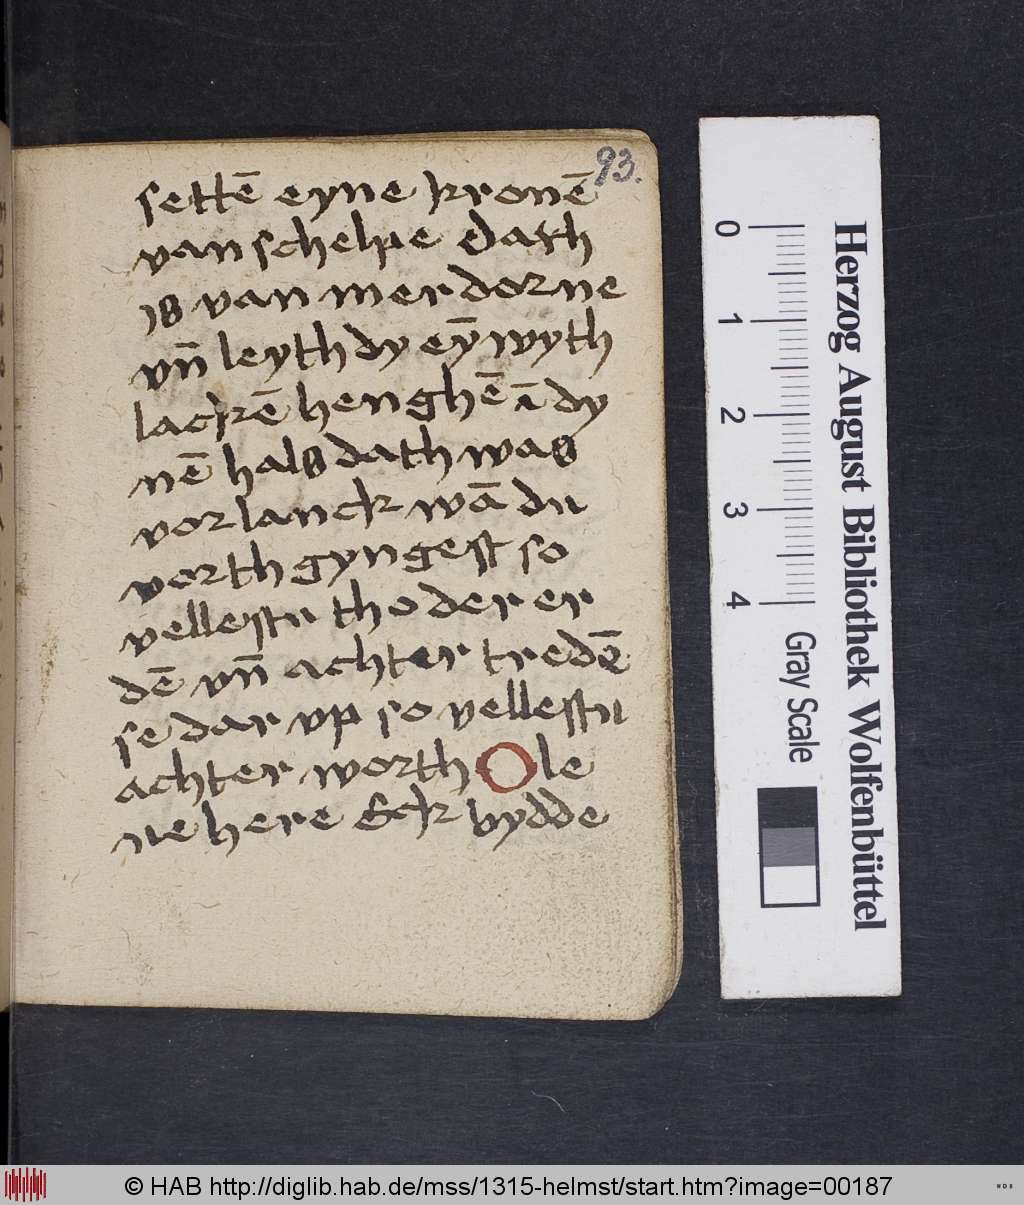 93.
settē eyne kronē
van schelpe dath
is van mer dorne
vn̄ leyth dy eȳ wyth
lackē henghē ī dy
nē hals dath was
vor lanck wā du
vorth gyngest so
vellestu tho der er
dē vn̄ achter tredē
se dar vp so vellestu
achter worth O le
ue here Eck bydde
0
1
2
3
4
Gray Scale
Herzog August Bibliothek Wolfenbüttel
© HAB http://diglib.hab.de/mss/1315-helmst/start.htm?image=00187
WDB